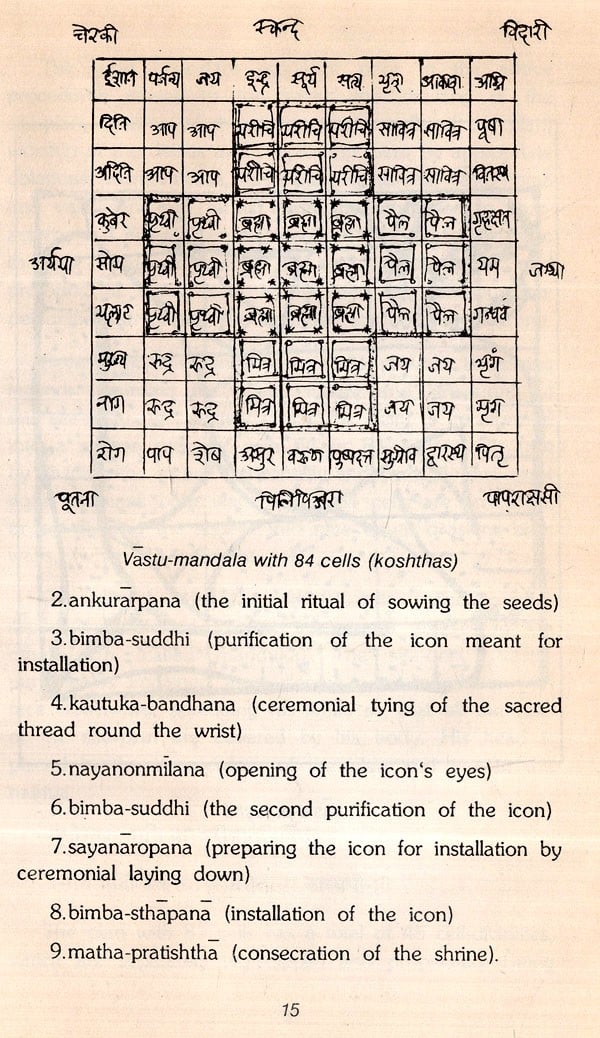 चेरकी स्कन्द विदारी
ईशान पर्जन्य जय इन्द्र सूर्य सत्य भृश आकाश अग्नि
दिति आप आप मरीचि मरीचि मरीचि सावित्र सावित्र पूषा
अदिति आप आप मरीचि मरीचि मरीचि सावित्र सावित्र वितथ
कुबेर पृथ्वी पृथ्वी ब्रह्मा ब्रह्मा ब्रह्मा पैल पैल गृहक्षत
अर्यमा सोम पृथ्वी पृथ्वी ब्रह्मा ब्रह्मा ब्रह्मा पैल पैल यम
पृथ्वी पृथ्वी ब्रह्मा ब्रह्मा ब्रह्मा पैल पैल गन्धर्व
मुख्य रुद्र रुद्र मित्र मित्र मित्र जय जय भृंग
नाग रुद्र रुद्र मित्र मित्र मित्र जय जय मृग
रोग पाप शेष असुर वरुण पुष्पदन्त सुग्रीव द्वारस्थ पितृ
पूतना पापराक्षसी
Vāstu-mandala with 84 cells (koshthas)
2.ankurārpana (the initial ritual of sowing the seeds)
3.bimba-suddhi (purification of the icon meant for
installation)
4.kautuka-bandhana (ceremonial tying of the sacred
thread round the wrist)
5.nayanonmīlana (opening of the icon's eyes)
6.bimba-suddhi (the second purification of the icon)
7.sayanāropana (preparing the icon for installation by
ceremonial laying down)
8.bimba-sthāpanā (installation of the icon)
9.matha-pratishthā (consecration of the shrine).
15